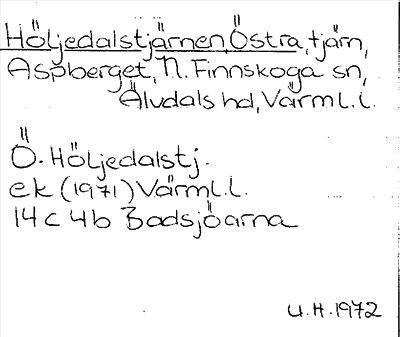 Höljedalstjärnen, Östra, tjärn,
Aspberget, N. Finnskoga sn,
Älvdals hd, Värml. l.
Ö. Höljedalstj.
ek (1971) Värml. l.
14 c 4b Badsjöarna
U.H. 1972